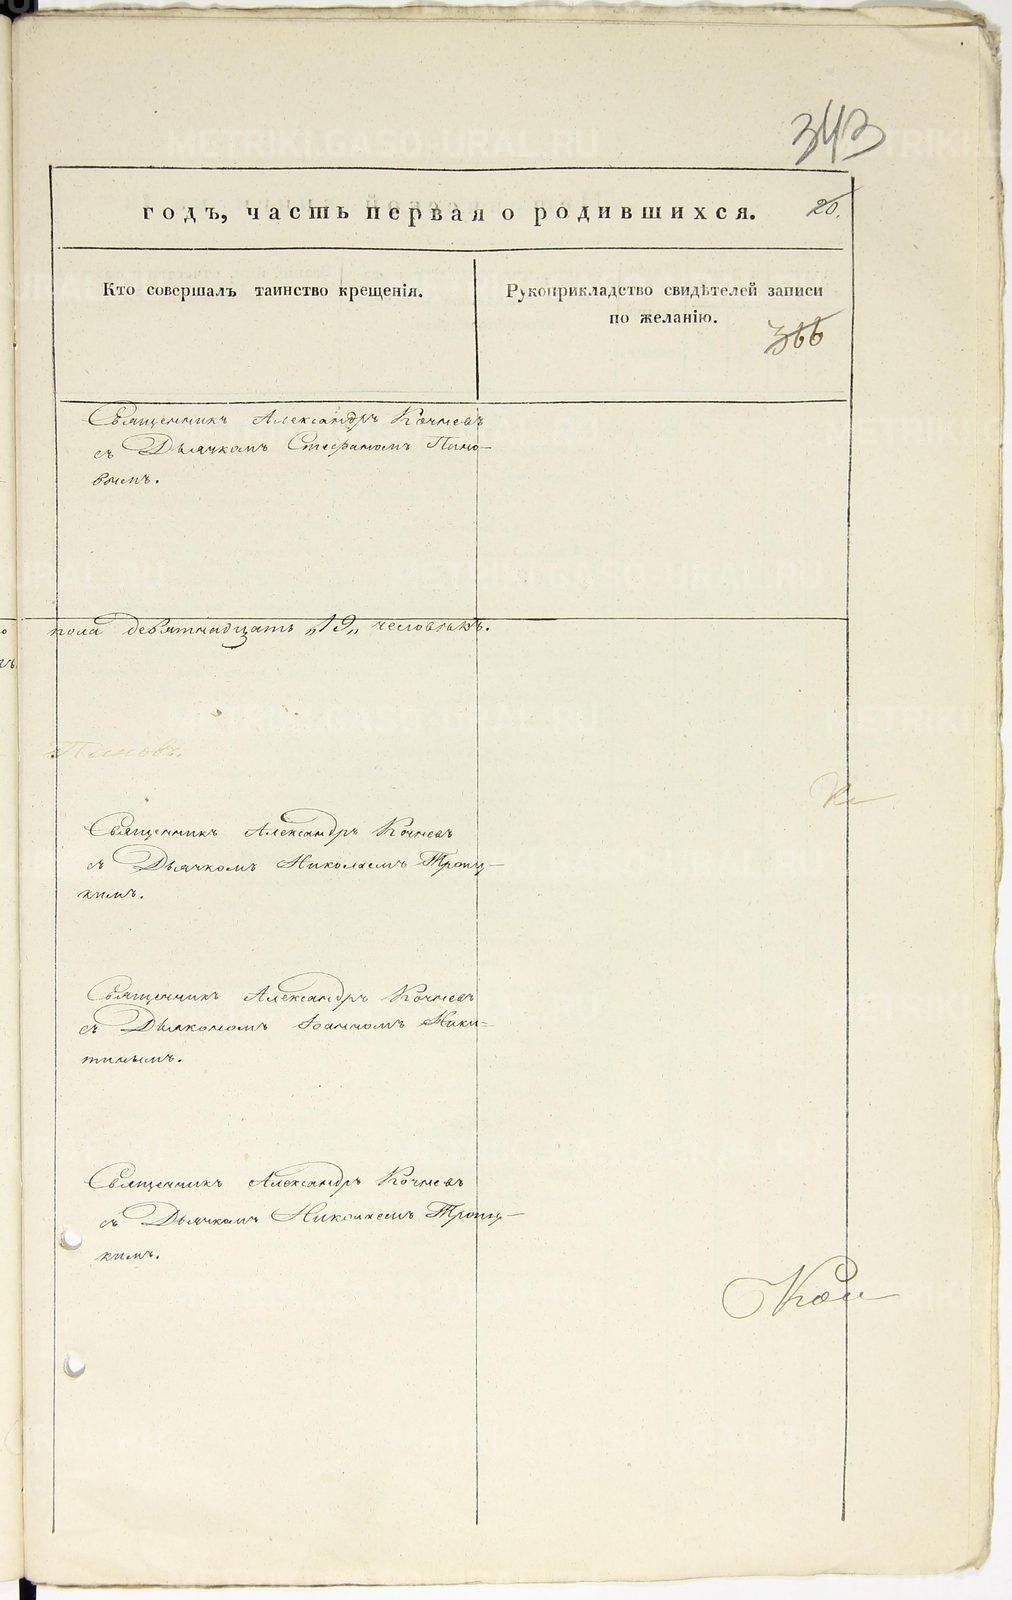 343
годъ, часть первая о родившихся. 20.
Кто совершалъ таинство крещенія.
Рукоприкладство свидѣтелей записи
по желанію.
366
Священникъ Александръ Кочневъ
съ Дьячкомъ Стефаномъ Пино-
вымъ.
пола девятнадцать „19„ человѣкъ.
Пиновъ.
Священникъ Александръ Кочневъ
съ Дьячкомъ Николаемъ Троиц-
кимъ.
Священникъ Александръ Кочневъ
съ Дьякономъ Іоанномъ Ники-
тинымъ.
Священникъ Александръ Кочневъ
съ Дьячкомъ Николаемъ Троиц-
кимъ.
METRIKI.GASO-URAL.RU